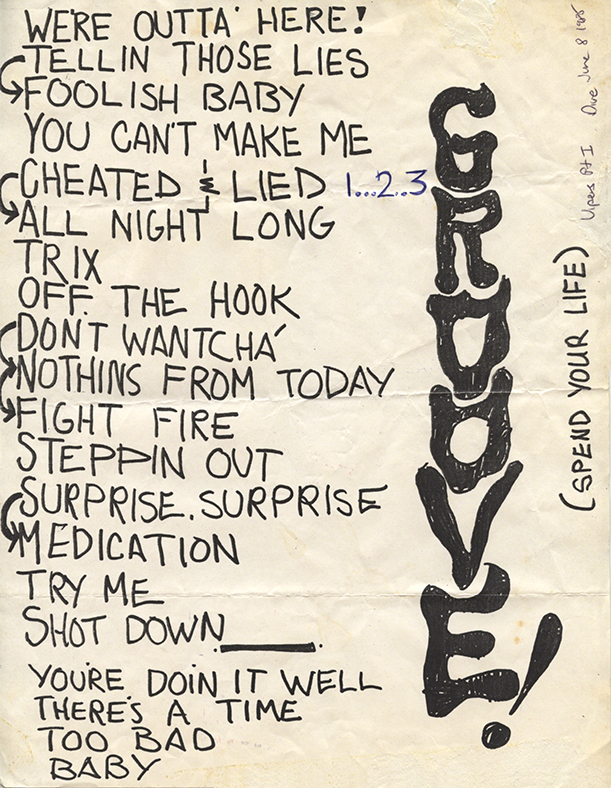 WE'RE OUTTA' HERE!
TELLIN THOSE LIES
FOOLISH BABY
YOU CAN'T MAKE ME
CHEATED & LIED 1...2..3
ALL NIGHT LONG
TRIX
OFF. THE HOOK
DONT WANTCHA'
NOTHINS FROM TODAY
FIGHT FIRE
STEPPIN OUT
SURPRISE. SURPRISE
MEDICATION
TRY ME
SHOT DOWN
YOU'RE DOIN IT WELL
THERE'S A TIME
TOO BAD
BABY
GORDOVE!
(SPEND YOUR LIFE)
Vipers Pt I Dive June 8 1985